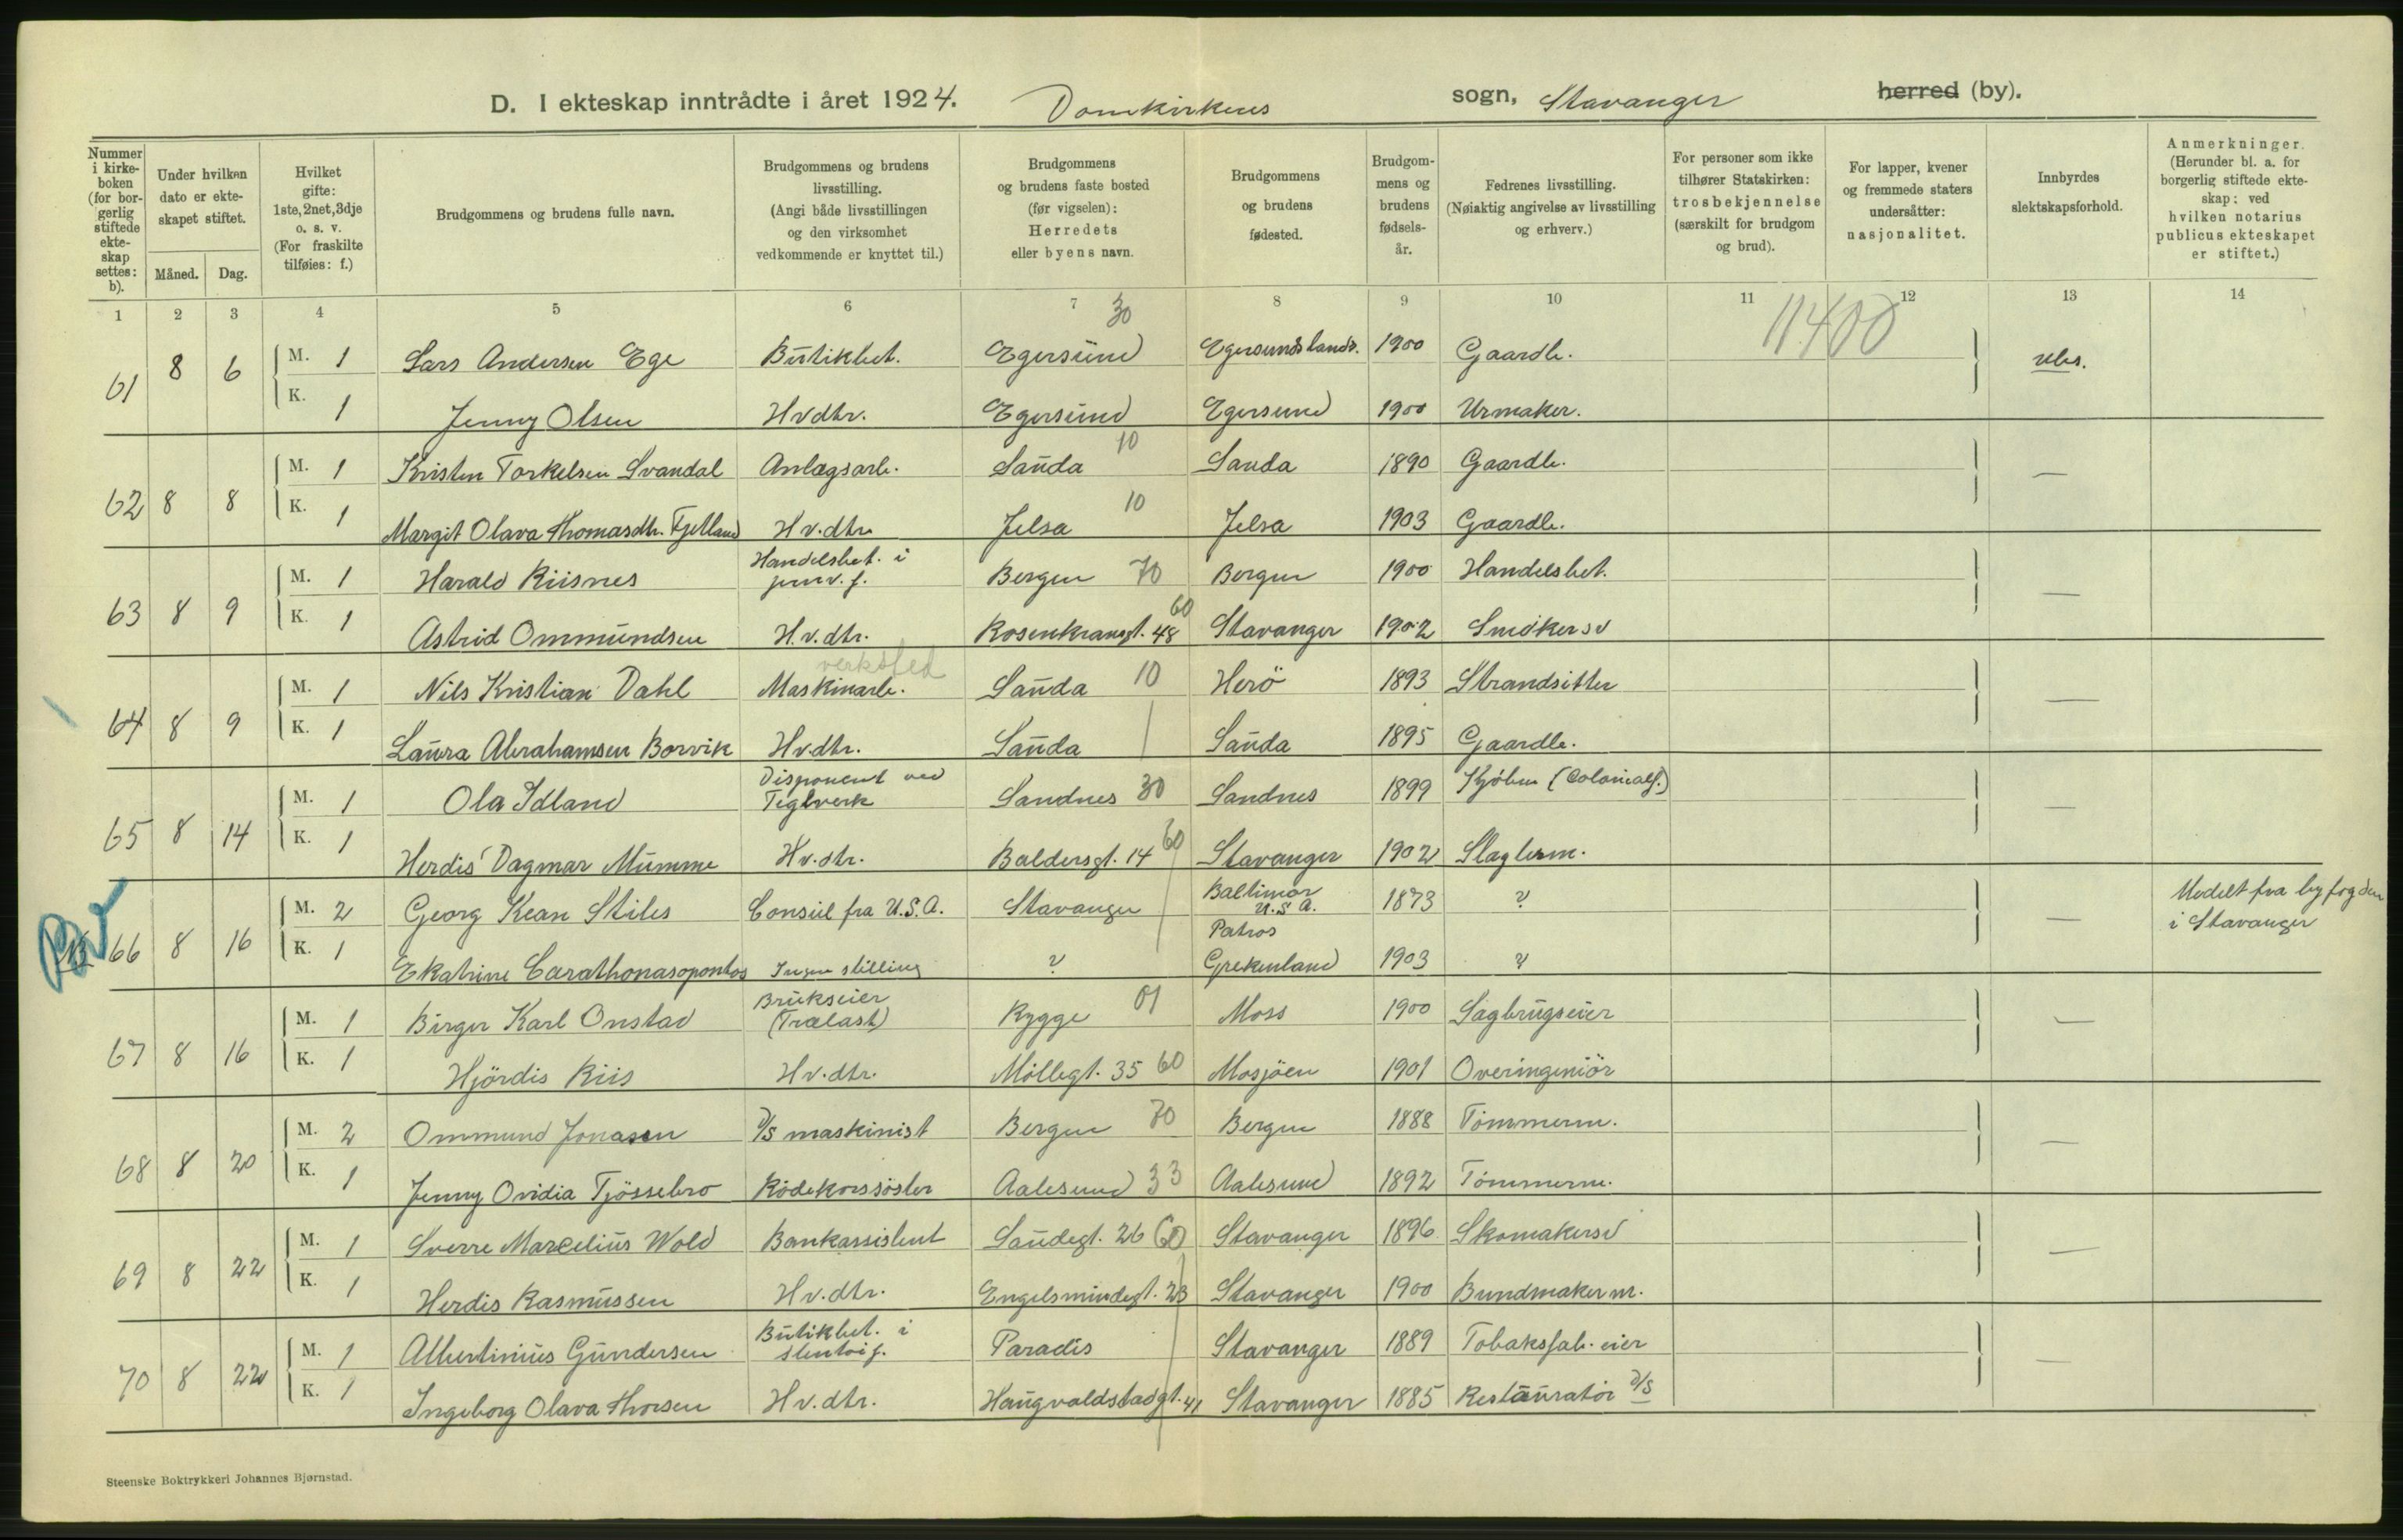 D. I ekteskap inntrådte i året 1924. Domkirkens sogn, Stavanger herred (by).
Nummer i kirkeboken (for borgerlig stiftede ekteskap settes: b).
Under hvilken dato er ekteskapet stiftet.
Måned. Dag.
Hvilket gifte: 1ste, 2net, 3dje o. s. v. (For fraskilte tilføies: f.)
Brudgommens og brudens fulle navn.
Brudgommens og brudens livsstilling. (Angi både livsstillingen og den virksomhet vedkommende er knyttet til.)
Brudgommens og brudens faste bosted (før vigselen): Herredets eller byens navn.
Brudgommens og brudens fødested.
Brudgommens og brudens fødselsår.
Fedrenes livsstilling. (Nøiaktig angivelse av livsstilling og erhverv.)
For personer som ikke tilhører Statskirken: trosbekjennelse (særskilt for brudgom og brud).
For lapper, kvener og fremmede staters undersåtter: nasjonalitet.
Innbyrdes slektskapsforhold.
Anmerkninger. (Herunder bl. a. for borgerlig stiftede ekteskap: ved hvilken notarius publicus ekteskapet er stiftet.)
1 2 3 4 5 6 7 8 9 10 11 12 13 14
30 11400
61 8 6 M. 1 Lars Andersen Ege Butikbet. Egersund Egersundslands. 1900 Gaardb. ubs.
K. 1 Jenny Olsen Hvdtr. Egersund Egersund 1900 Urmaker.
62 8 8 M. 1 Kristen Torkelsen Svandal Anlægsarb. Sauda 10 Sauda 1890 Gaardb. —
K. 1 Margit Olava Thomasdtr. Fjelland Hv.dtr. Jelsa 10 Jelsa 1903 Gaardb.
63 8 9 M. 1 Harald Riisnes Handelsbet. i Bergen 70 Bergen 1900 Handelsbet. —
K. 1 Astrid Ommundsen H.v.dtr. Rosenkransgt. 48 60 Stavanger 1902 Smöker sv
64 8 9 M. 1 Nils Kristian Dahl Maskinarb. verksted Sauda 10 Herö 1893 Strandsitter —
K. 1 Laura Abrahamsen Borvik Hvdtr. Sauda Sauda 1895 Gaardb.
65 8 14 M. 1 Ola Idland Disponent ved Teglverk Sandnes 30 Sandnes 1899 Kjöbm (Colonialf.) —
K. 1 Herdis Dagmar Mumme Hv.dtr. Baldersgt. 14 60 Stavanger 1902 Slagterm.
66 8 16 M. 2 Georg Kean Stiles Consul fra U.S.A. Stavanger Baltimor U.S.A. 1873 ? — Medelt fra byfogden i Stavanger
K. 1 Ekatrine Carathonasopontos Ingen stilling ? Patros Grekenland 1903 ?
67 8 16 M. 1 Birger Karl Onstad Brukseier (Trælast) Rygge 01 Moss 1900 Sagbrugseier —
K. 1 Hjördis Riis Hv.dtr. Möllegt. 35 60 Mosjöen 1901 Overingeniör
68 8 20 M. 2 Ommund Jonasen D/S maskinist Bergen 70 Bergen 1888 Tömmerm. —
K. 1 Jenny Ovidia Tjössebro Rödekorssöster Aalesund 33 Aalesund 1892 Tömmerm.
69 8 22 M. 1 Sverre Marcelius Wold Bankassistent Saudegt. 26 60 Stavanger 1896 Skomakersv —
K. 1 Herdis Rasmussen Hv.dtr. Engelsmindegt. 23 Stavanger 1900 Bundmakerm.
70 8 22 M. 1 Albertinius Gundersen Butikbet. i stentöif. Paradis Stavanger 1889 Tobaksfab. eier —
K. 1 Ingeborg Olava Thorsen Hv.dtr. Haugvaldstadgt. 41 Stavanger 1885 Restauratör D/S
Steenske Boktrykkeri Johannes Bjørnstad.